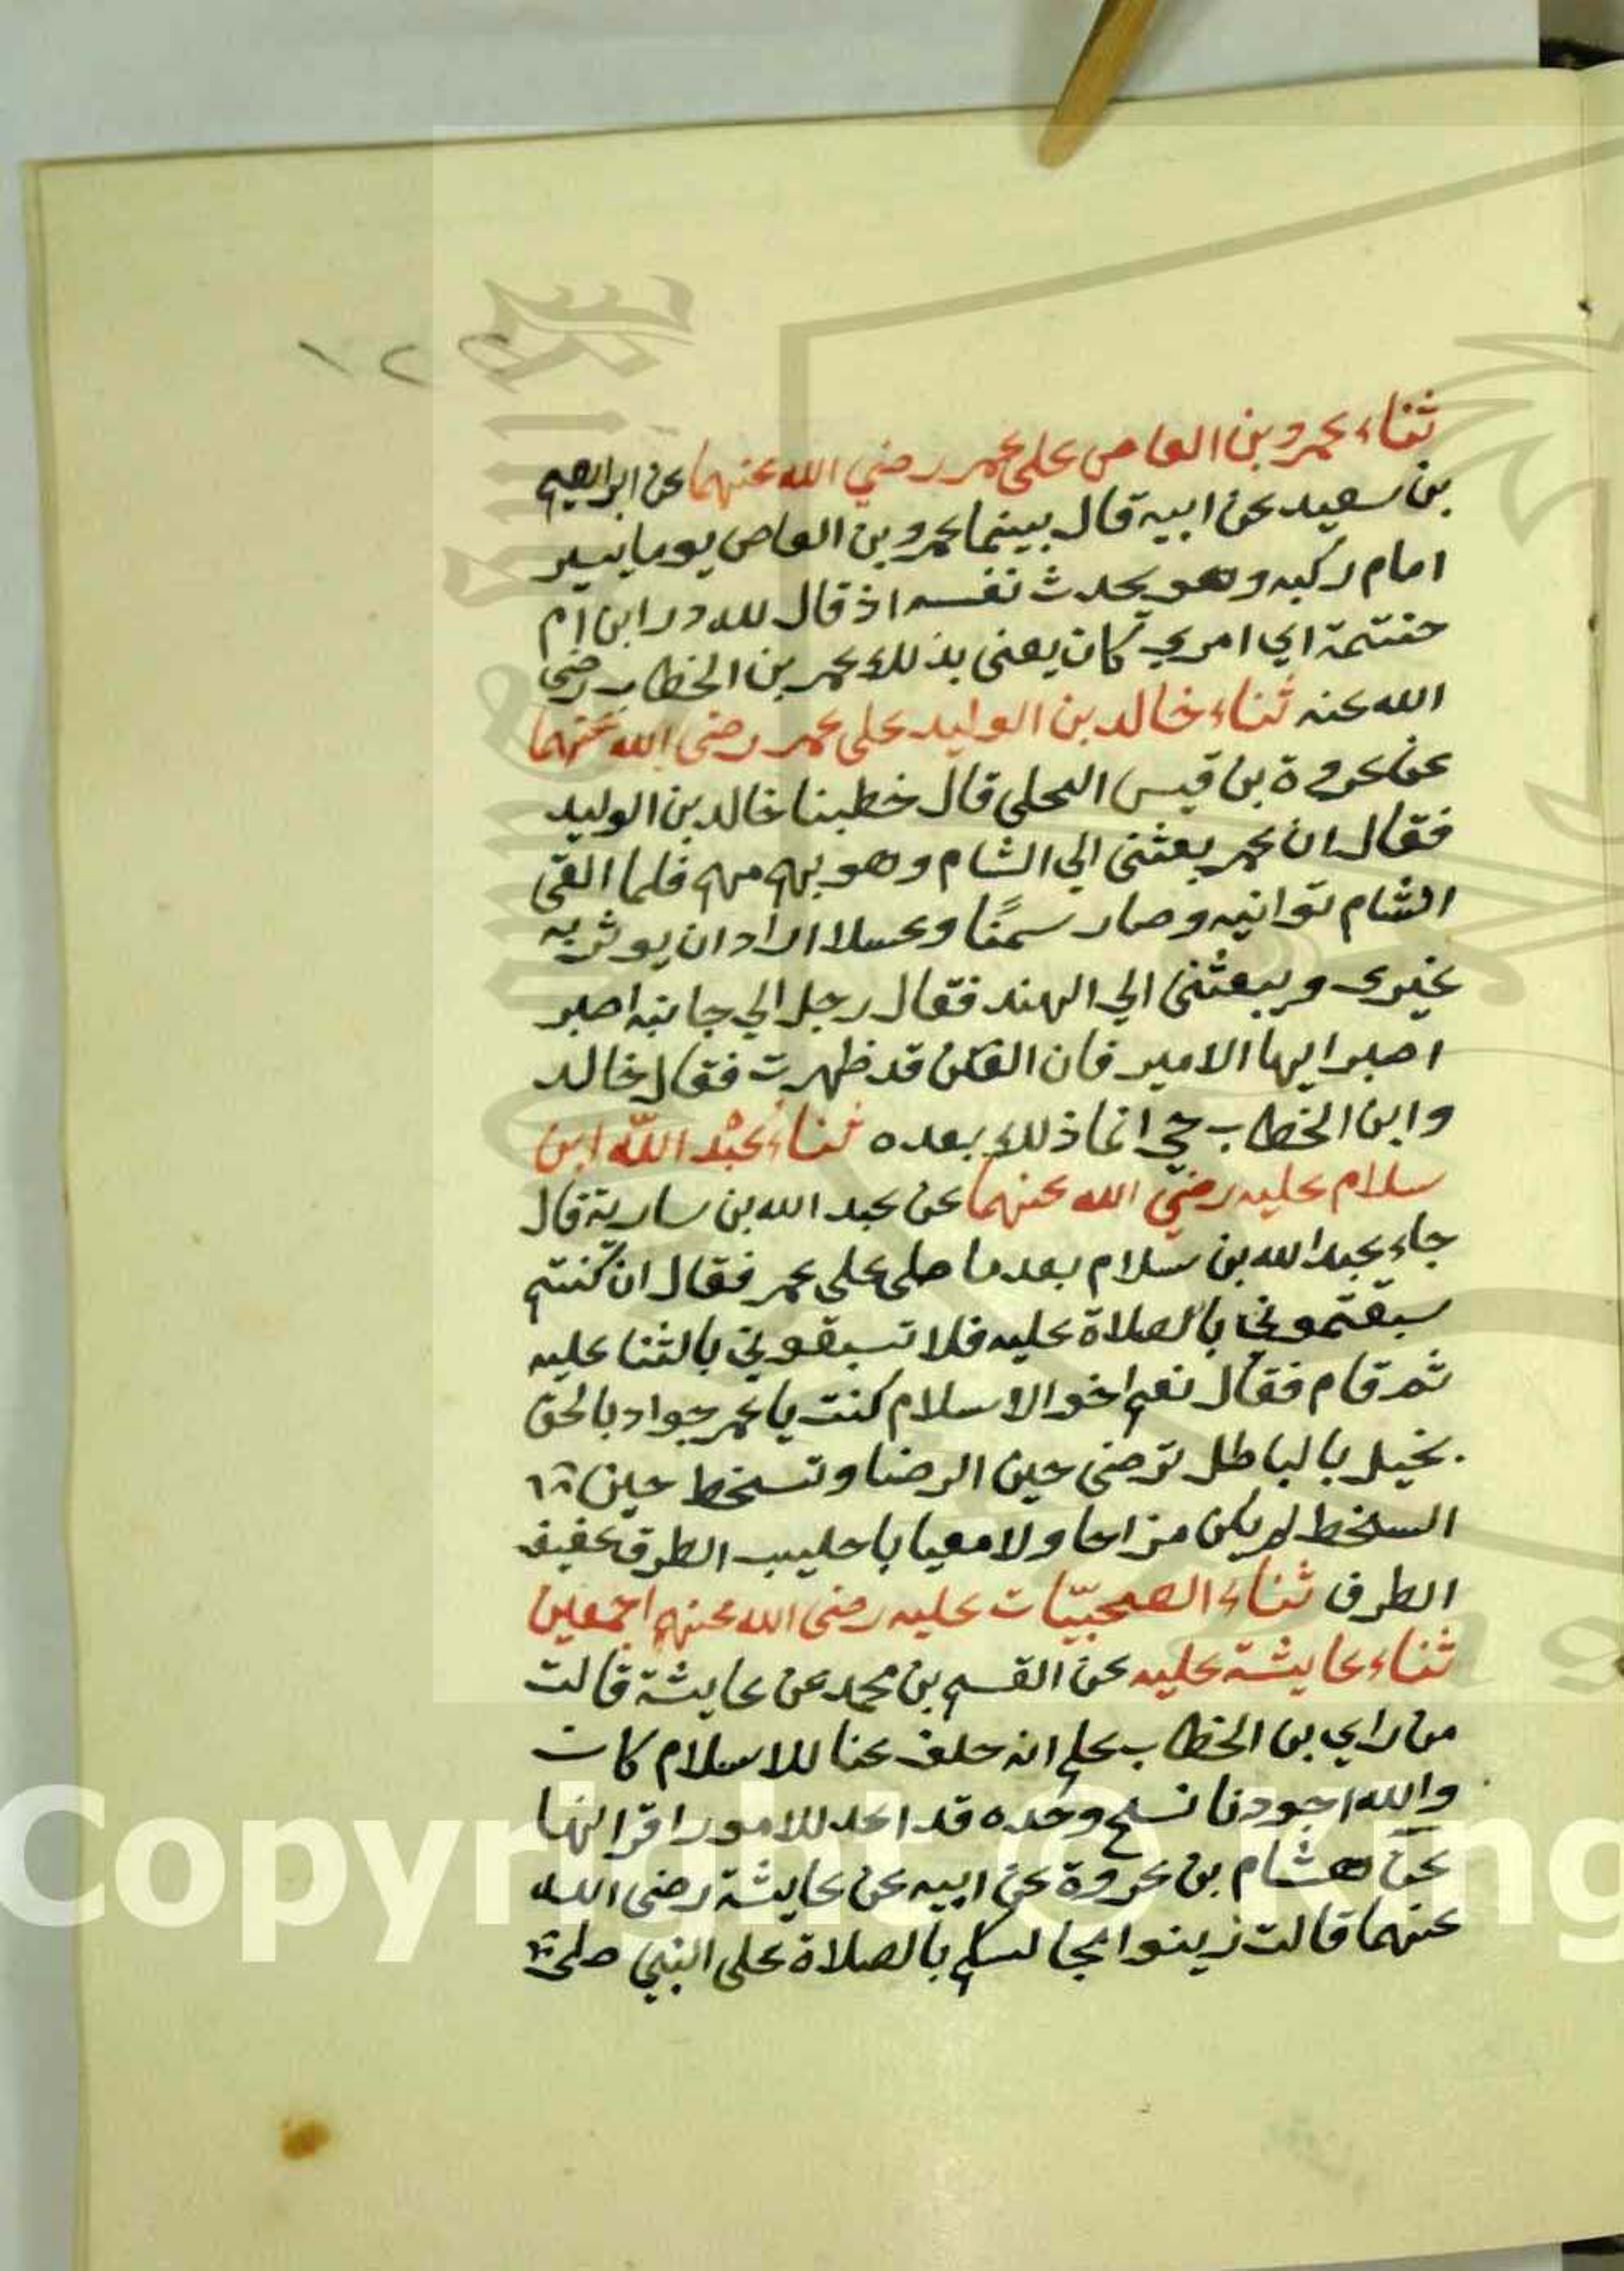 ١٢٢
ثناء عمرو بن العاص على عمر رضي الله عنهما عن ابراهيم
بن سعيد عن ابيه قال بينما عمرو بن العاص يوما يسير
امام ركبه وهو يحدث نفسه اذ قال لله در ابن ام
حنتمة اي امري كان يعنى بذلك عمر بن الخطاب رضى
الله عنه ثناء خالد بن الوليد على عمر رضى الله عنهما
عن عروة بن قيس البجلى قال خطبنا خالد بن الوليد
فقال ان عمر بعثنى الي الشام وهو يهمه فلما القى
الشام توانيه وصار سمنًا وعسلا اراد ان يوثر به
غيرى ويبعثنى الي الهند فقال رجل الي جانبه اصبر
اصبر ايها الامير فان الفتن قد ظهرت فقال خالد
وابن الخطاب حي انما ذلك بعده ثناء عبْد الله ابن
سلام عليه رضي الله عنهما عن عبد الله بن سارية قال
جاء عبد الله بن سلام بعدما صلى على عمر فقال ان كنتم
سبقتموني بالصلاة عليه فلا تسبقوني بالثنا عليه
ثم قام فقال نعم اخو الاسلام كنت يا عمر جواد بالحق
بخيل بالباطل ترضى حين الرضا وتسخط حين
السخط لم يكن مزاحا ولا معيابا حليب الطرف عفيف
الطرف ثناء الصحبيّات عليه رضى الله عنهم اجمعين
ثناء عايشة عليه عن القسم بن محمد عن عايشة قالت
من راي بن الخطاب علم انه خلف عنا للاسلام كان
والله اجودنا نسج وحْده قد اعد للامور اقرانها
عن هشام بن عروة عن ابيه عن عايشة رضى الله
عنهما قالت زينوا مجالسكم بالصلاة على النبي صلى
Copyright © King